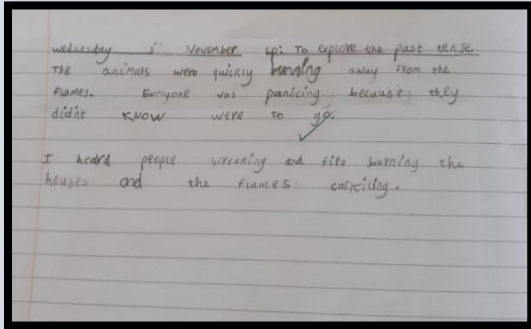 wednesday 3rd November LP: To explore the past tense
The animals were quickly running away from the
flames. Everyone was panicing, because they
didnt know were to go.
I heard people screaming and fire burning the
houses and the flames